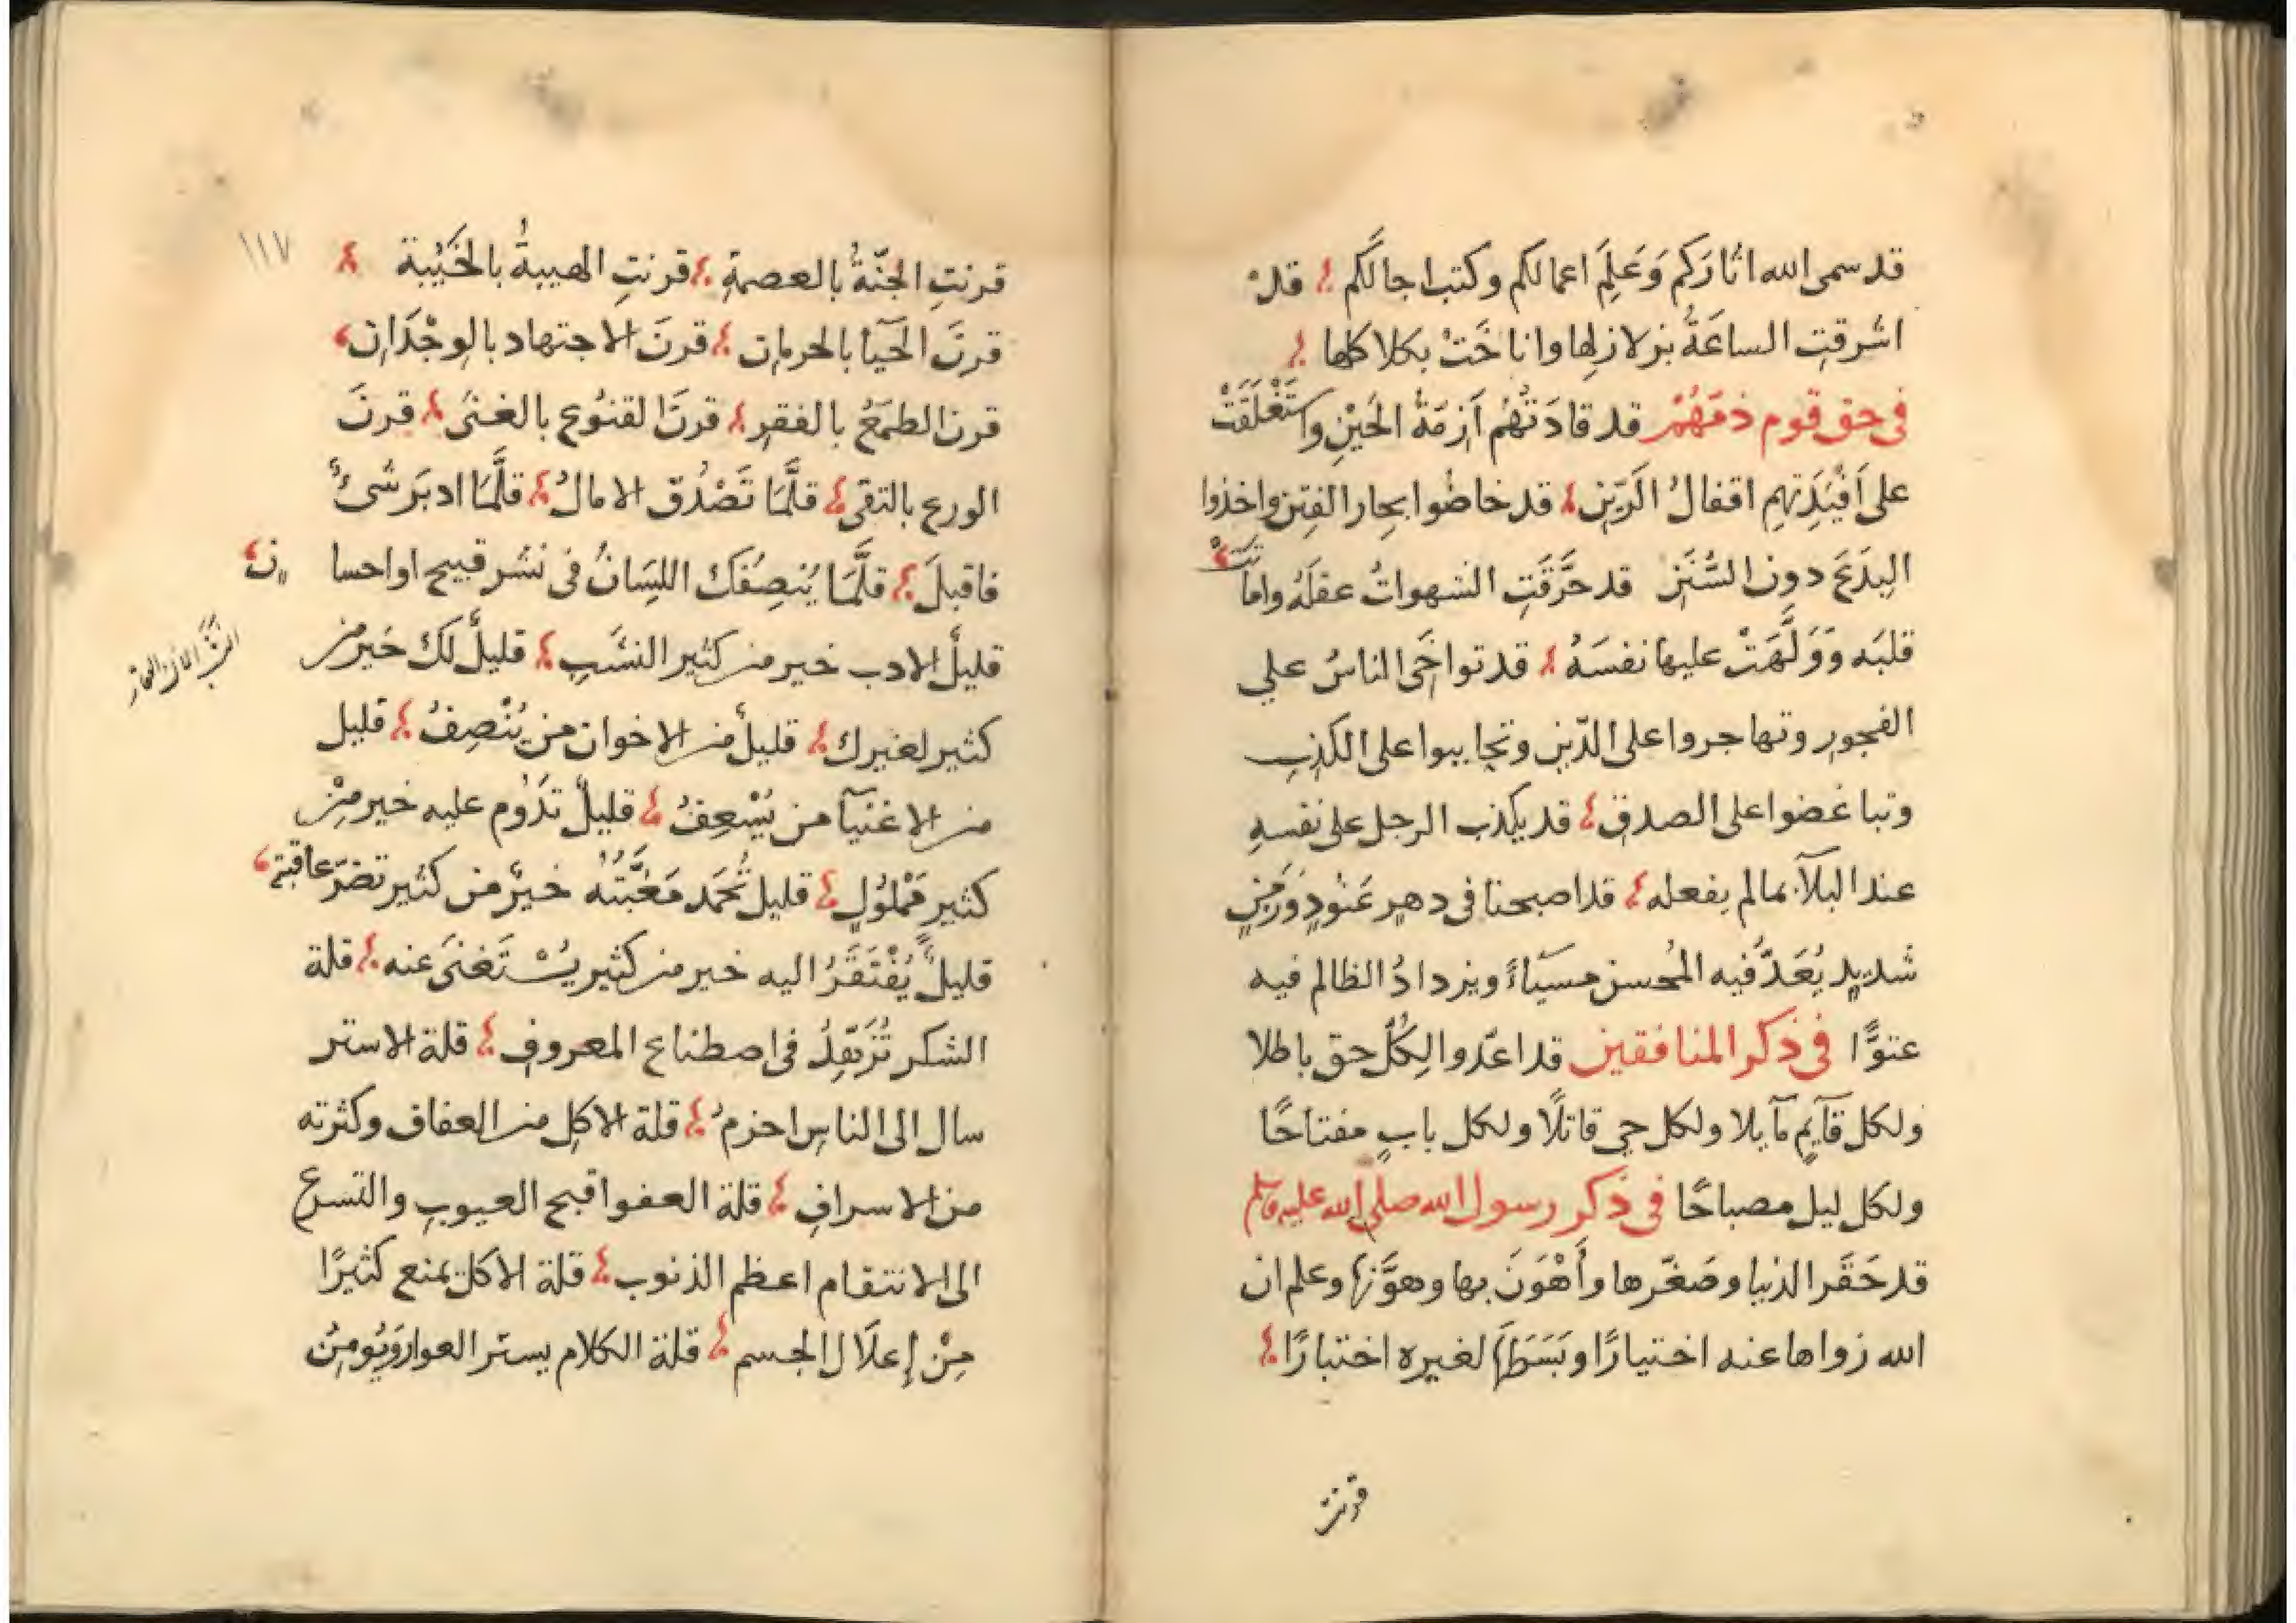 قد سمى الله اثارَكم وَعَلِمَ اعمالكم وكتب اجالكم قد
اشرقتِ الساعَةُ بزلازلِها واناخَتْ بكلاكلها
فى حق قوم ذمّهُمْ قد قادَتْهُم اَزِمّةُ الحَيْنِ واستَغْلَقَتْ
على اَفْئِدَتِهِم اقفالُ الرَّيْنِ قد خاضُوا بحار الفِتَنِ واخذوا
البِدَعَ دون السُّنَنِ قد خَرَّقَتِ الشهواتُ عقلَهُ واماتَتْ
قلبَه وَوَلَّهَتْ عليها نفسَهُ قد تواخَى الناسُ على
الفجورِ وتهاجروا على الدّينِ وتحاببوا على الكذِبِ
وتباغضوا على الصدقِ قد يكذب الرجل على نفسهِ
عند البلآءِ بما لم يفعله قد اصبحنا فى دهرٍ عَنُودٍ وزمَنٍ
شديدٍ يُعَدّ فيه المُحسن مسيئاً ويزدادُ الظالم فيه
عتوًّا فى ذكر المنافقين قد اعدّوا لِكُلّ حق باطلا
ولكل قآيمٍ مآيلا ولكل حىٍ قاتلًا ولكل بابٍ مفتاحًا
ولكل ليل مصباحًا فى ذكر رسول الله صلى الله عليه وسلم
قد حَقَّر الدنيا وصَغّرها وأَهْوَنَ بها وهوَّنها وعلم ان
الله زواها عنه اختيارًا وبَسَطَها لغيره اختبارًا
قرنت
١١٧
قرنتِ الجنّةُ بالعصمةِ قرنتِ الهيبةُ بالخَيْبة
قرنَ الحَيآءُ بالحرمان قرنَ الاجتهاد بالوِجْدَان
قرن الطمَعُ بالفقرِ قرنَ القنُوع بالغنَى قرنَ
الورع بالتقى قلَّمَا تَصْدُق الامالُ قلَّمَا ادبَر شىءٌ
فاقبلَ قلَّمَا يُنصِفُكَ اللِسَانُ فى نشر قبيح او احسا
ن
قليلُ الادب خير من كثير النشَبِ قليلٌ لكَ خَير من
كثير لغيرك قليلٌ من الاخوان من يُنْصِفُ قليل
من الاغنيآء من يُسْعِفُ قليلٌ تدُوم عليه خير مِنْ
كثيرٍ مَمْلوُلٍ قليل تُحمَد مَغَبَّتُه خيرٌ من كثير تضرّ عاقبته
قليلٌ يُفْتَقَرُ اليه خير من كثير يُسْتَغنَى عنه قلة
الشكر تُزَهِّدُ فى اصطناع المعروفِ قلة الاستر
سال الى الناسِ احزمُ قلة الاكلِ من العفاف وكثرته
من الاسرافِ قلة العفو اقبح العيوبِ والتسرع
الى الانتقام اعظم الذنوب قلة الاكل يمنع كثيرًا
مِنْ إعلَال الجسم قلة الكلام يستر العوار وَيُومِنُ